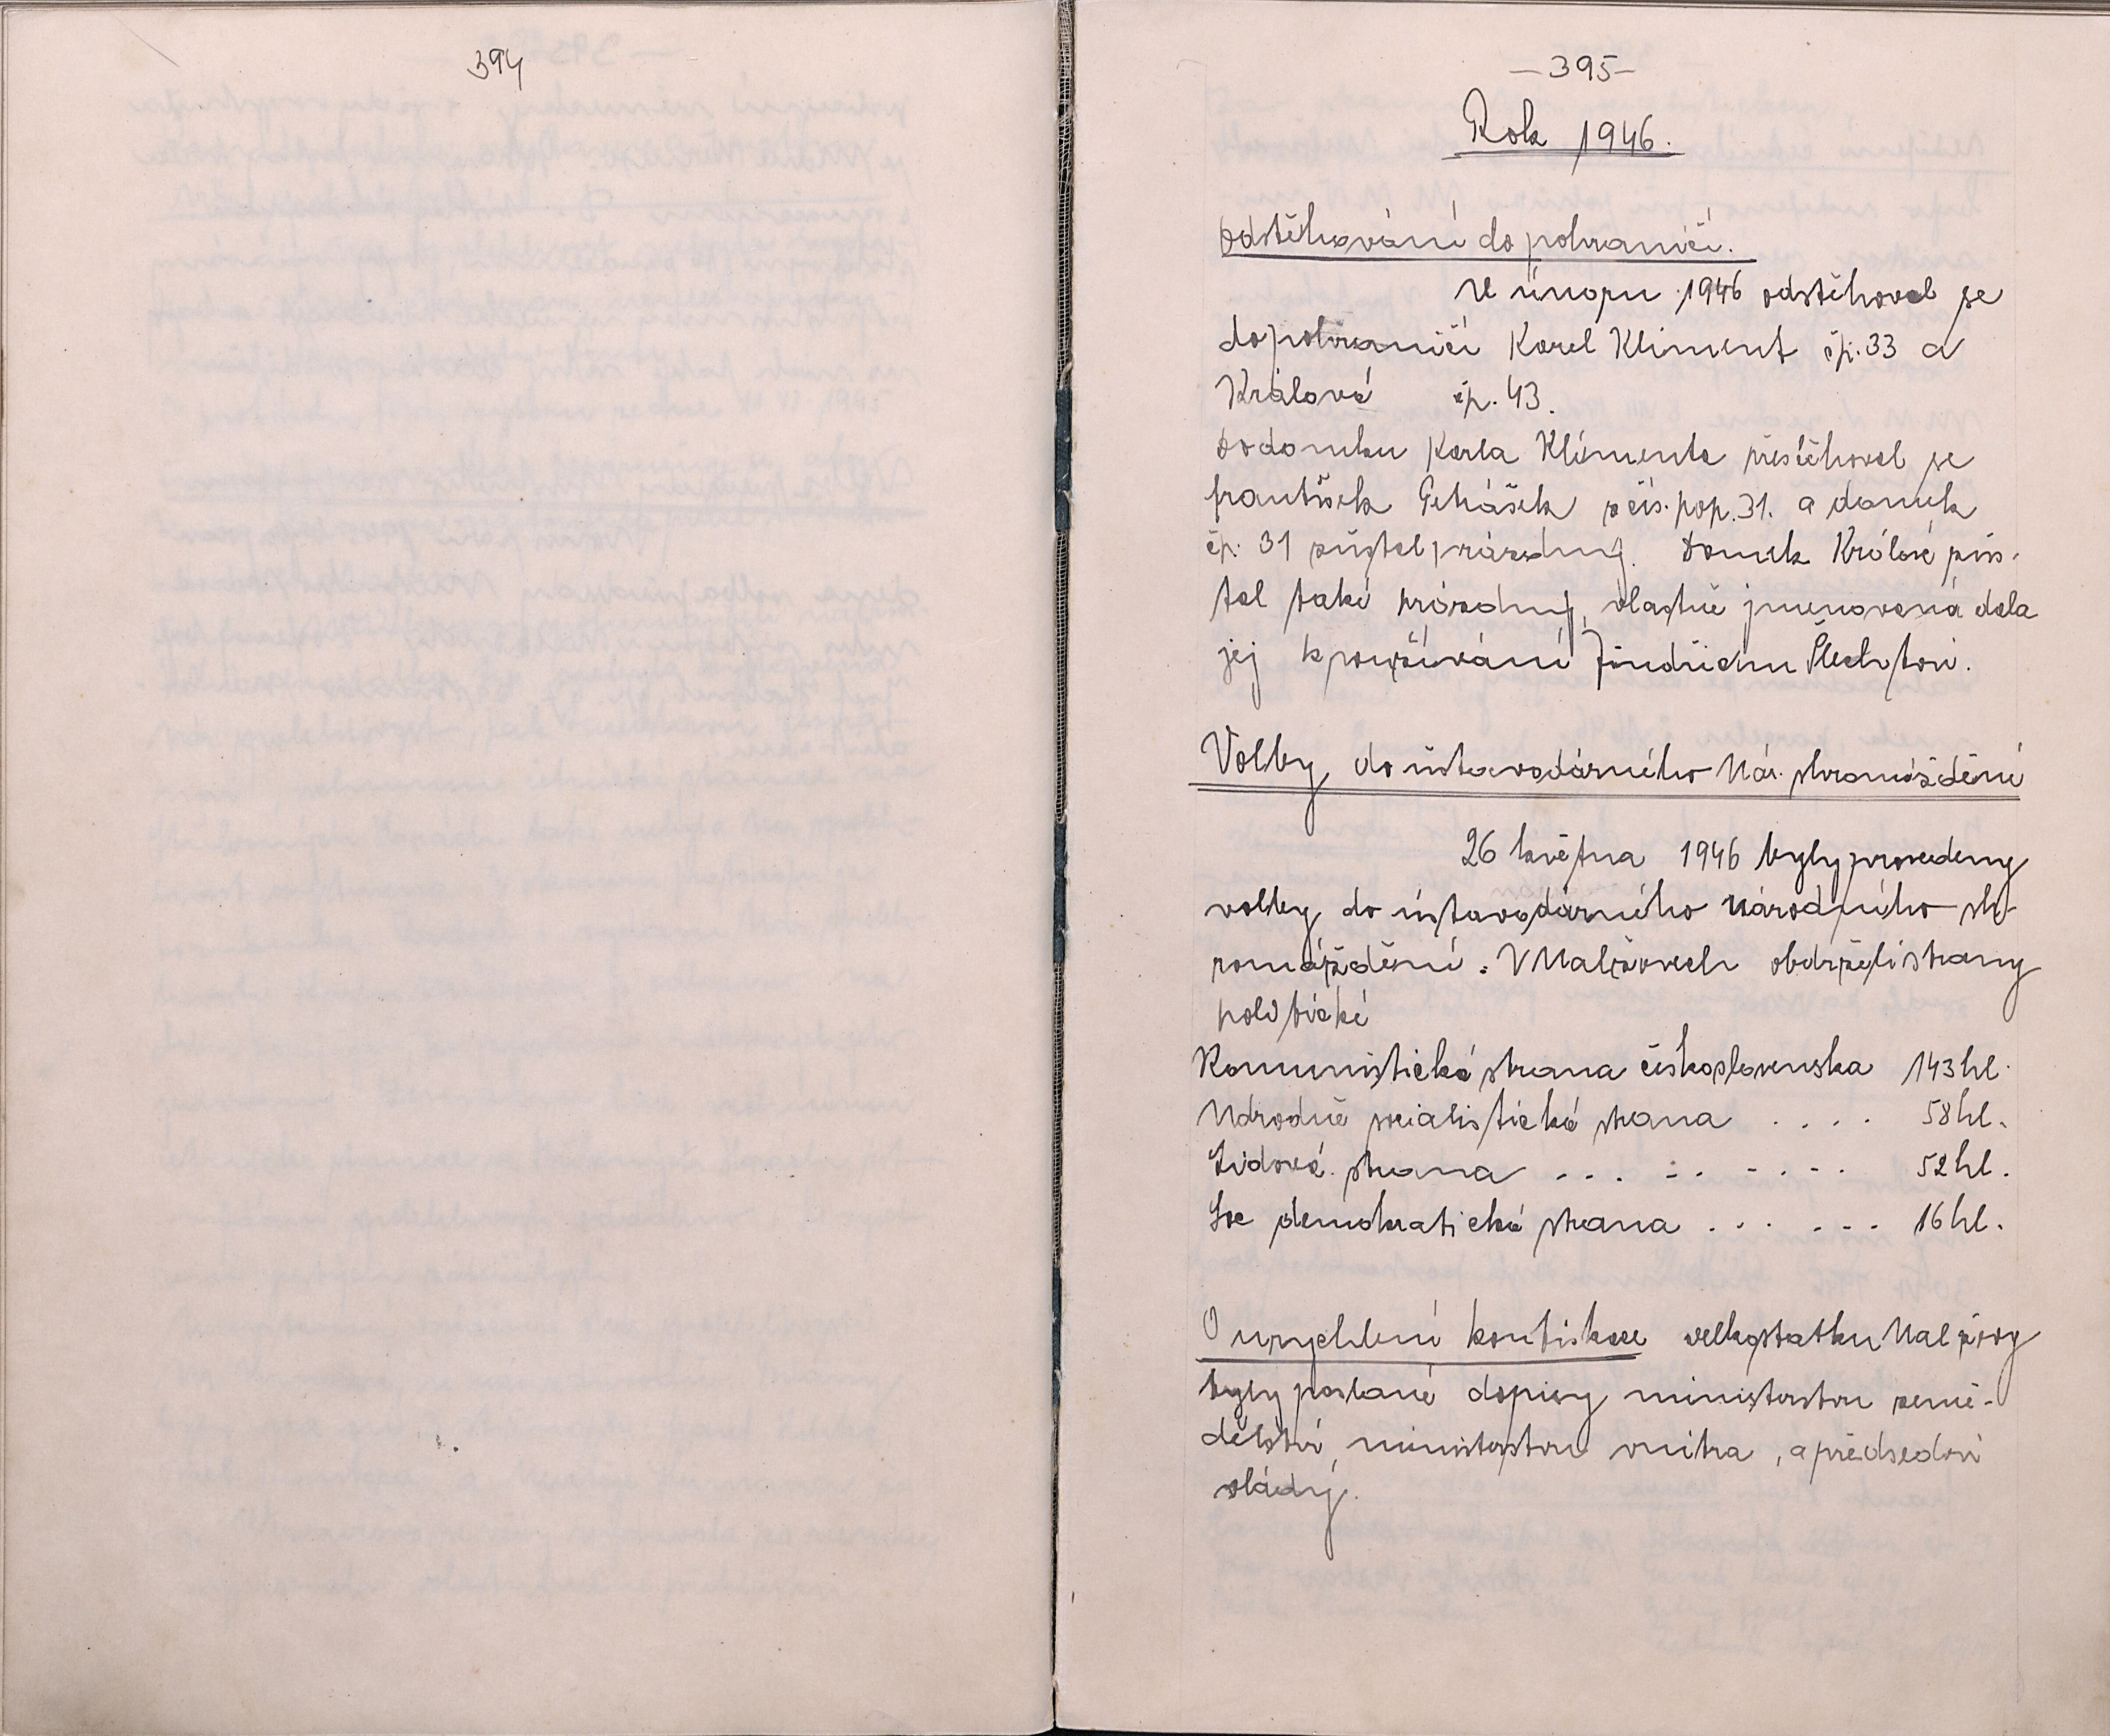 394
—395—
Rok 1946.
Odstěhování do pohraničí.
V únoru 1946 odstěhoval se
do pohraničí Karel Kliment čp. 33 a
Králová čp. 43.
Do domku Karla Klimenta přestěhoval se
František Petrášek z čís. pop. 31. a domek
čp. 31 zůstal prázdný. Domek Králové zůs-
tal také prázdný, vlastně jmenovaná dala
jej k používání Jindřichu Šlechtovi.
Volby do ústavodárného Nár. shromáždění
26 května 1946 byly provedeny
volby do ústavodárného národního sh-
romáždění. V Malšovech obdrželi strany
politické
Komunistická strana československa 143 hl.
Národně socialistická strana . . . . 58 hl.
Lidová strana . . . . . . . . . 52 hl.
Soc demokratická strana . . . . . . 16 hl.
O urychlení konfiskace velkostatku Malšovy
byly poslané dopisy ministerstvu země-
dělství, ministerstvu vnitra, a předsedovi
vlády.